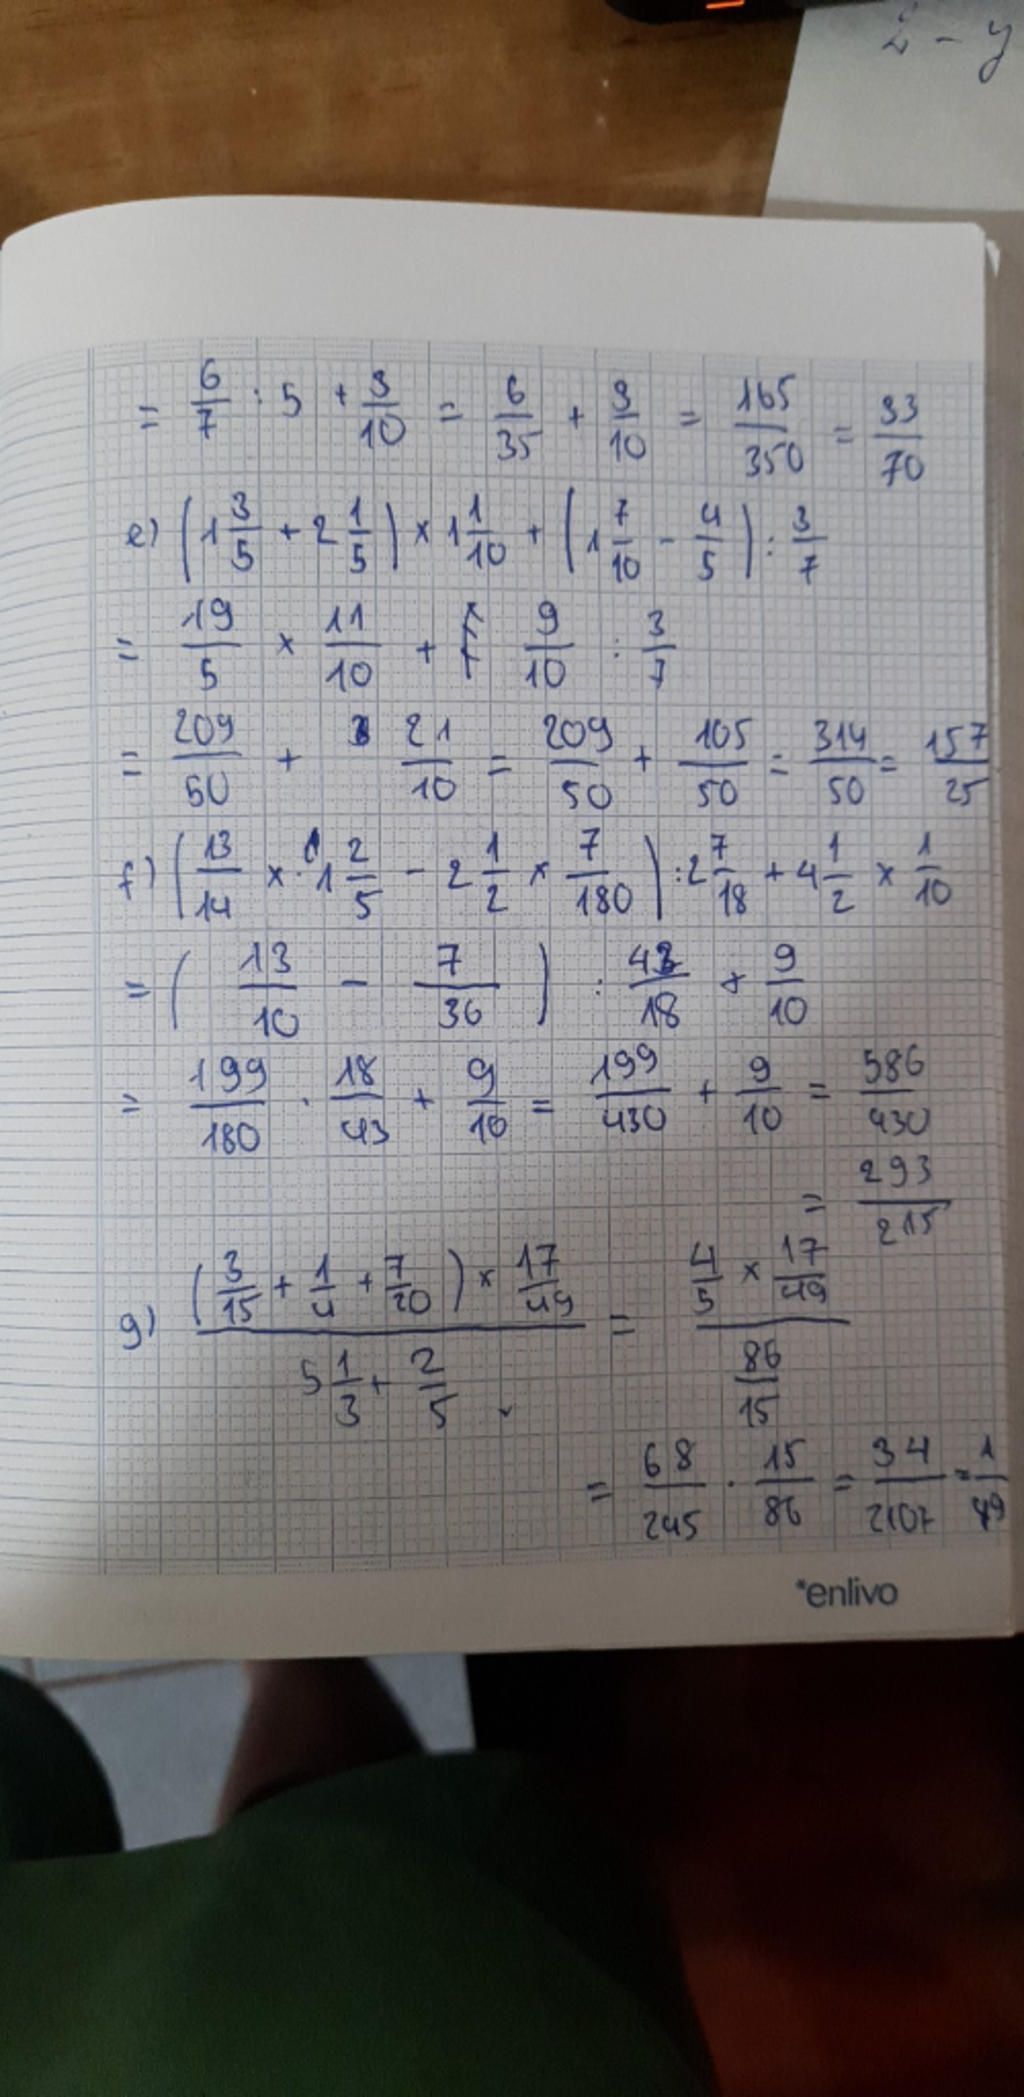 2 - y
= 6/7 : 5 + 3/10 = 6/35 + 3/10 = 165/350 = 33/70
e) (1 3/5 + 2 1/5) × 1 1/10 + (1 7/10 - 4/5) : 3/7
= 19/5 × 11/10 + 9/10 : 3/7
= 209/50 + 21/10 = 209/50 + 105/50 = 314/50 = 157/25
f) (13/14 × 1 2/5 - 2 1/2 × 7/180) : 2 7/18 + 4 1/2 × 1/10
= (13/10 - 7/36) : 43/18 + 9/10
= 199/180 . 18/43 + 9/10 = 199/430 + 9/10 = 586/430
= 293/215
g) ((3/15 + 1/4 + 7/20) × 17/49)/(5 1/3 + 2/5) = (4/5 × 17/49)/(86/15)
= 68/245 . 15/86 = 34/2107 = 1/49
*enlivo